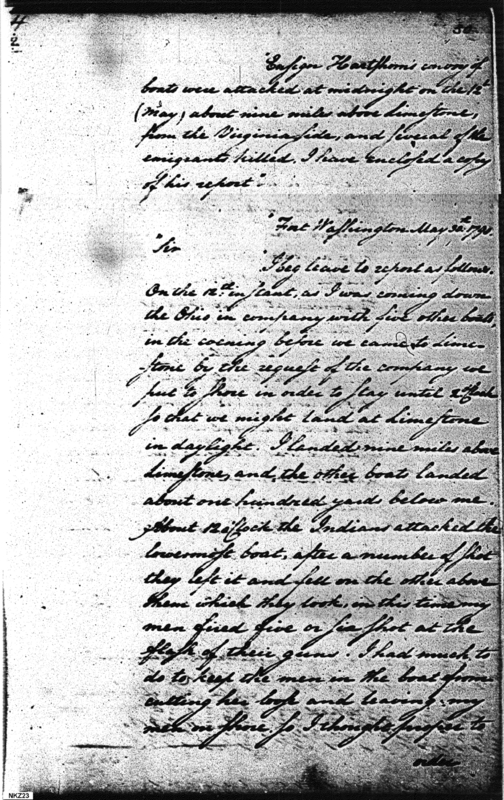 "Ensign Hartshorn's convoy of
boats were attacked at midnight on the 12th
(May) about nine miles above Limestone,
from the Virginia side, and several of the
emigrants killed, I have enclosed a copy
of his report".
"Fort Washington May 30th 1790.
"Sir
"I beg leave to report as follows.
On the 12th instant, as I was coming down
the Ohio in company with five other boats,
in the evening before we came to Lime-
stone by the request of the company we
put to shore in order to stay until 2 oClock
so that we might land at Limestone
in daylight. I landed nine miles above
Limestone, and the other boats landed
about one hundred yard below me
About 12 oClock the Indians attacked the
lowermost boat, after a number of shot
they left it and fell on the other above
them which they took, in this time my
men fired five or six shot at the
flash of their guns. I had much to
do to keep the men in the boat from
cutting her loose and leaving my
men on shore, so I thought proper to
order
NKZ23